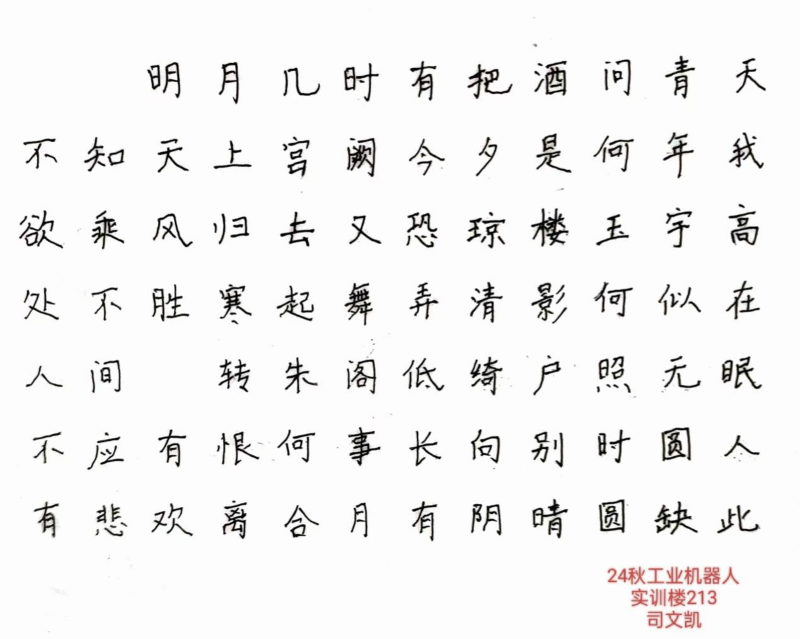 明月几时有把酒问青天
不知天上宫阙今夕是何年我
欲乘风归去又恐琼楼玉宇高
处不胜寒起舞弄清影何似在
人间 转朱阁低绮户照无眠
不应有恨何事长向别时圆人
有悲欢离合月有阴晴圆缺此
24秋工业机器人
实训楼213
司文凯